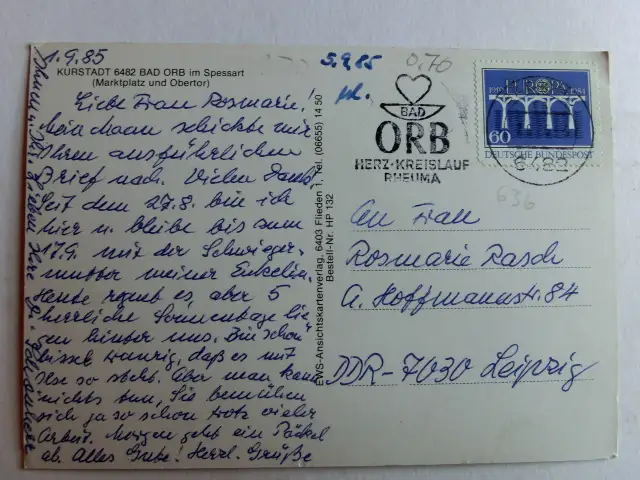 1.9.85
KURSTADT 6482 BAD ORB im Spessart
(Marktplatz und Obertor)
Liebe Frau Rosmarie!
Mein Mann schickte mir
Ihren ausführlichen
Brief nach. Vielen Dank!
Seit dem 27.8. bin ich
hier u. bleibe bis zum
17.9. mit der Schwieger-
mutter meiner Enkelin.
Heute regnet es, aber 5
herrliche Sonnentage lie-
gen hinter uns. Bin schon
bissel traurig, daß es mit
so steht. Aber man kann
nichts tun, Sie bemühen
sich ja so schon trotz vieler
Arbeit. Morgen geht ein Päckel
ab. Alles Gute! Herzl. Grüße
EWS-Ansichtskartenverlag, 6403 Flieden 1, Tel. (06655) 14 50
Bestell-Nr. HP 132
5.9.85
0,70
BAD
ORB
HERZ-KREISLAUF
RHEUMA
EUROPA
1959 1984
60
DEUTSCHE BUNDESPOST
6482
636
An Frau
Rosmarie Rasch
A. Hoffmannstr. 84
DDR-7030 Leipzig